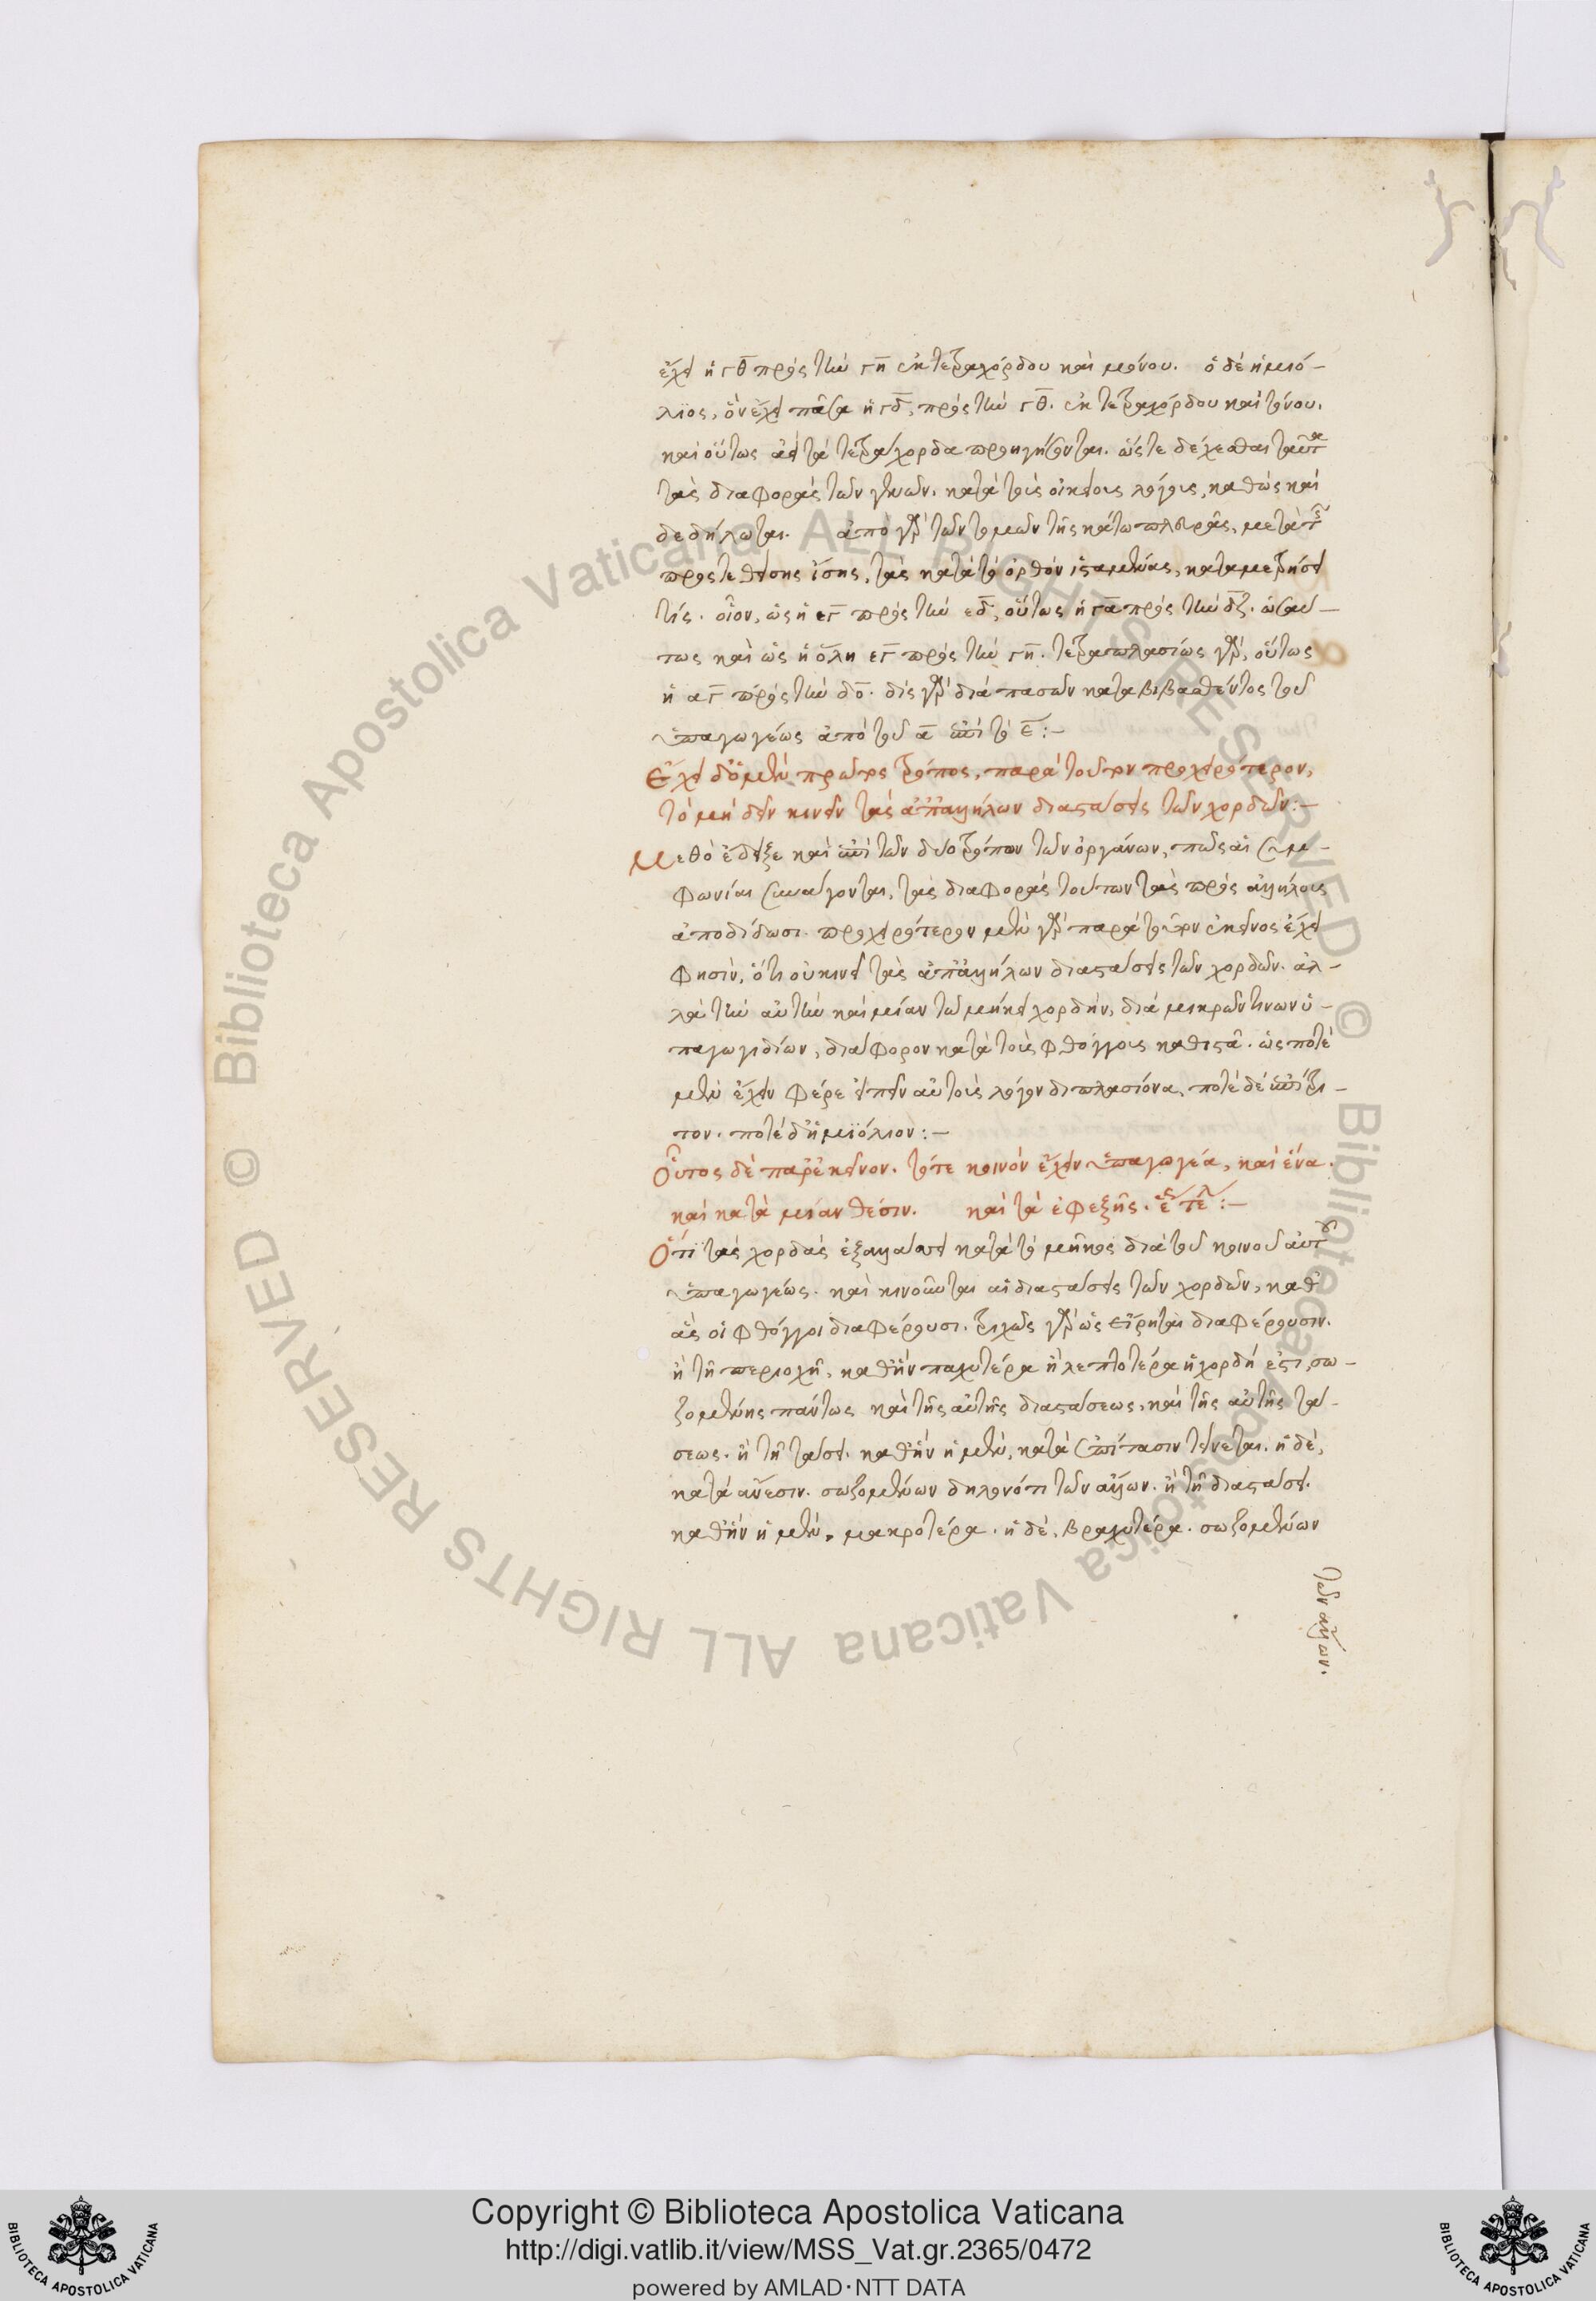 ἔχει ἡ γθ πρὸς τὴν γη ἐκ τετραχόρδου καὶ μόνου. ὁ δὲ ἡμιό-
λιος, ὃν ἔχει πᾶσα ἡ γδ, πρὸς τὴν γθ. ἐκ τετραχόρδου καὶ τόνου.
καὶ οὕτως ἀεὶ τὰ τετράχορδα προηγήσονται. ὥστε δέχεσθαι ταῦτα
τὰς διαφορὰς τῶν γενῶν. κατὰ τοὺς οἰκείους λόγους, καθὼς καὶ
δεδήλωται. ἀπὸ γὰρ τῶν τομῶν τῆς κάτω πλευρᾶς, μετὰ τῆς
προστεθείσης ἴσης, τὰς κατὰ τὸ ὀρθὸν ἱσταμένας, καταμετρήσει
τίς. οἷον, ὡς ἡ εγ πρὸς τὴν εδ, οὕτως ἡ γα πρὸς τὴν δζ. ὡσαύ-
τως καὶ ὡς ἡ ὅλη εγ πρὸς τὴν γη. τετραπλασίως γὰρ, οὕτως
ἡ αγ πρὸς τὴν δο. δὶς γὰρ διὰ πασῶν καταβιβασθέντος τοῦ
ὑπαγωγέως ἀπὸ τοῦ α ἐπὶ τὸ ε:-
Ἔχει δ' ὁ μὲν πρῶτος τρόπος, παρὰ τοῦτον προχειρότερον,
τὸ μηδὲν κινεῖν τὰς ἀπ' ἀλλήλων διαστάσεις τῶν χορδῶν:-
Μεθὸ ἔδειξε καὶ ἐπὶ τῶν δύο τρόπων τῶν ὀργάνων, πῶς αἱ συμ-
φωνίαι συνάγονται, τὰς διαφορὰς τούτων τὰς πρὸς ἀλλήλους
ἀποδίδωσι. προχειρότερον μὲν γὰρ παρὰ τοῦτον ἐκεῖνος ἔχει
φησὶν, ὅτι οὐ κινεῖ τὰς ἀπ' ἀλλήλων διαστάσεις τῶν χορδῶν. ἀλ-
λὰ τὴν αὐτὴν καὶ μίαν τῶ μήκει χορδὴν, διὰ μικρῶν τινων ὑ-
παγωγιδίων, διάφορον κατὰ τοὺς φθόγγους καθιστᾶ. ὡς ποτὲ
μὲν ἔχειν φέρε εἰπεῖν αὐτοὺς λόγον διπλασίονα, ποτὲ δὲ ἐπίτρι-
τον. ποτὲ δ' ἡμιόλιον:-
Οὗτος δὲ παρ' ἐκεῖνον. τότε κοινὸν ἔχειν ὑπαγωγέα, καὶ ἕνα.
καὶ κατὰ μίαν θέσιν. καὶ τὰ ἐφεξῆς. ἕως τέλ:-
Ὅτι τὰς χορδὰς ἐξαλλάττει κατὰ τὸ μῆκος διὰ τοῦ κοινοῦ αὐτοῦ
ὑπαγωγέως. καὶ κινοῦνται αἱ διαστάσεις τῶν χορδῶν, καθ'
ἃς οἱ φθόγγοι διαφέρουσι. τριχῶς γὰρ ὡς εἴρηται διαφέρουσιν.
ἢ τῆ περιοχῆ, καθ' ἣν παχυτέρα ἢ λεπτοτέρα ἡ χορδή ἐστι, σω-
ζομένης πάντως καὶ τῆς αὐτῆς διαστάσεως, καὶ τῆς αὐτῆς τά-
σεως. ἢ τῆ τάσει. καθ' ἣν ἡ μὲν, κατὰ ἐπίτασιν τείνεται. ἡ δὲ,
κατὰ ἄνεσιν. σωζομένων δηλονότι τῶν ἄλλων. ἢ τῆ διαστάσει.
καθ' ἣν ἡ μὲν, μακροτέρα. ἡ δὲ, βραχυτέρα. σωζομένων
τῶν ἄλλων.
Copyright © Biblioteca Apostolica Vaticana
http://digi.vatlib.it/view/MSS_Vat.gr.2365/0472
powered by AMLAD·NTT DATA
BIBLIOTECA APOSTOLICA VATICANA
BIBLIOTECA APOSTOLICA VATICANA
© Biblioteca Apostolica Vaticana ALL RIGHTS RESERVED © Biblioteca Apostolica Vaticana ALL RIGHTS RESERVED